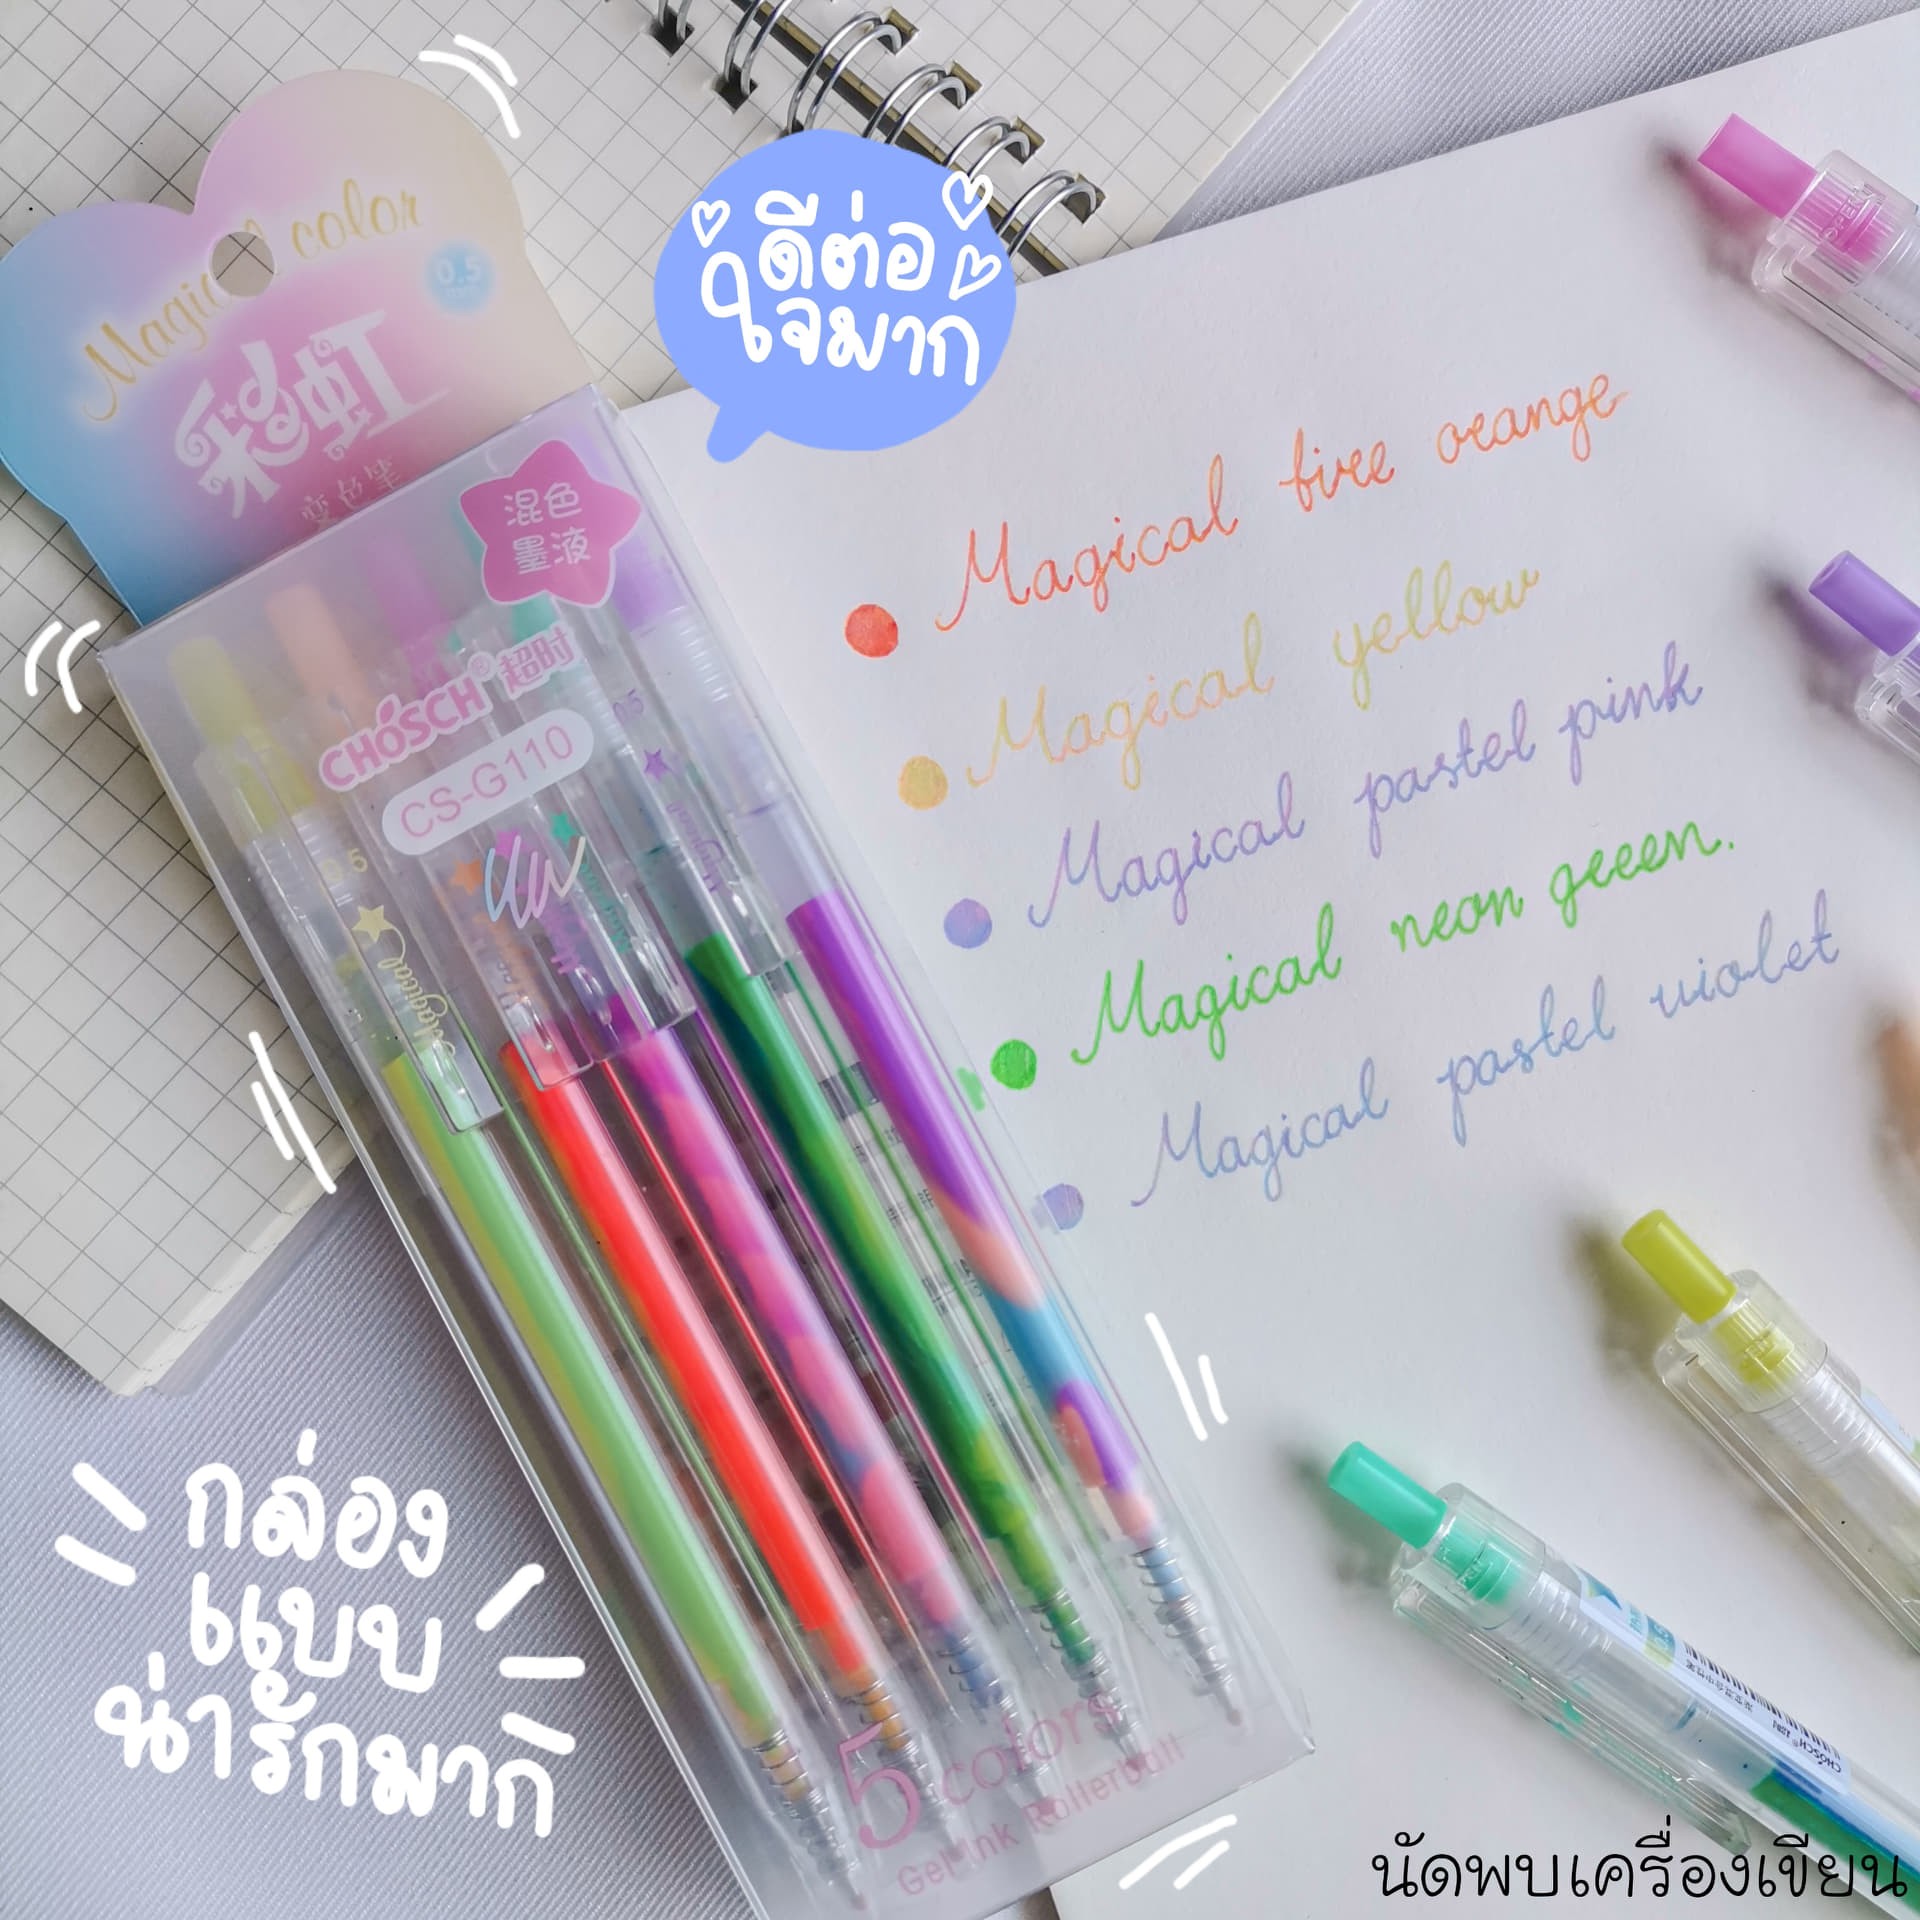 Magical color
0.5
彩虹
变色笔
混色
墨液
CHOSCH® 超时
CS-G110
0.5
0.5
Magical
5 colors
Gel Ink Rollerball
ดีต่อ
ใจมาก
Magical fire orange
Magical yellow
Magical pastel pink
Magical neon green.
Magical pastel violet
OPEN
กล่อง
แบบ
น่ารักมาก
CHOSCH®
นัดพบเครื่องเขียน